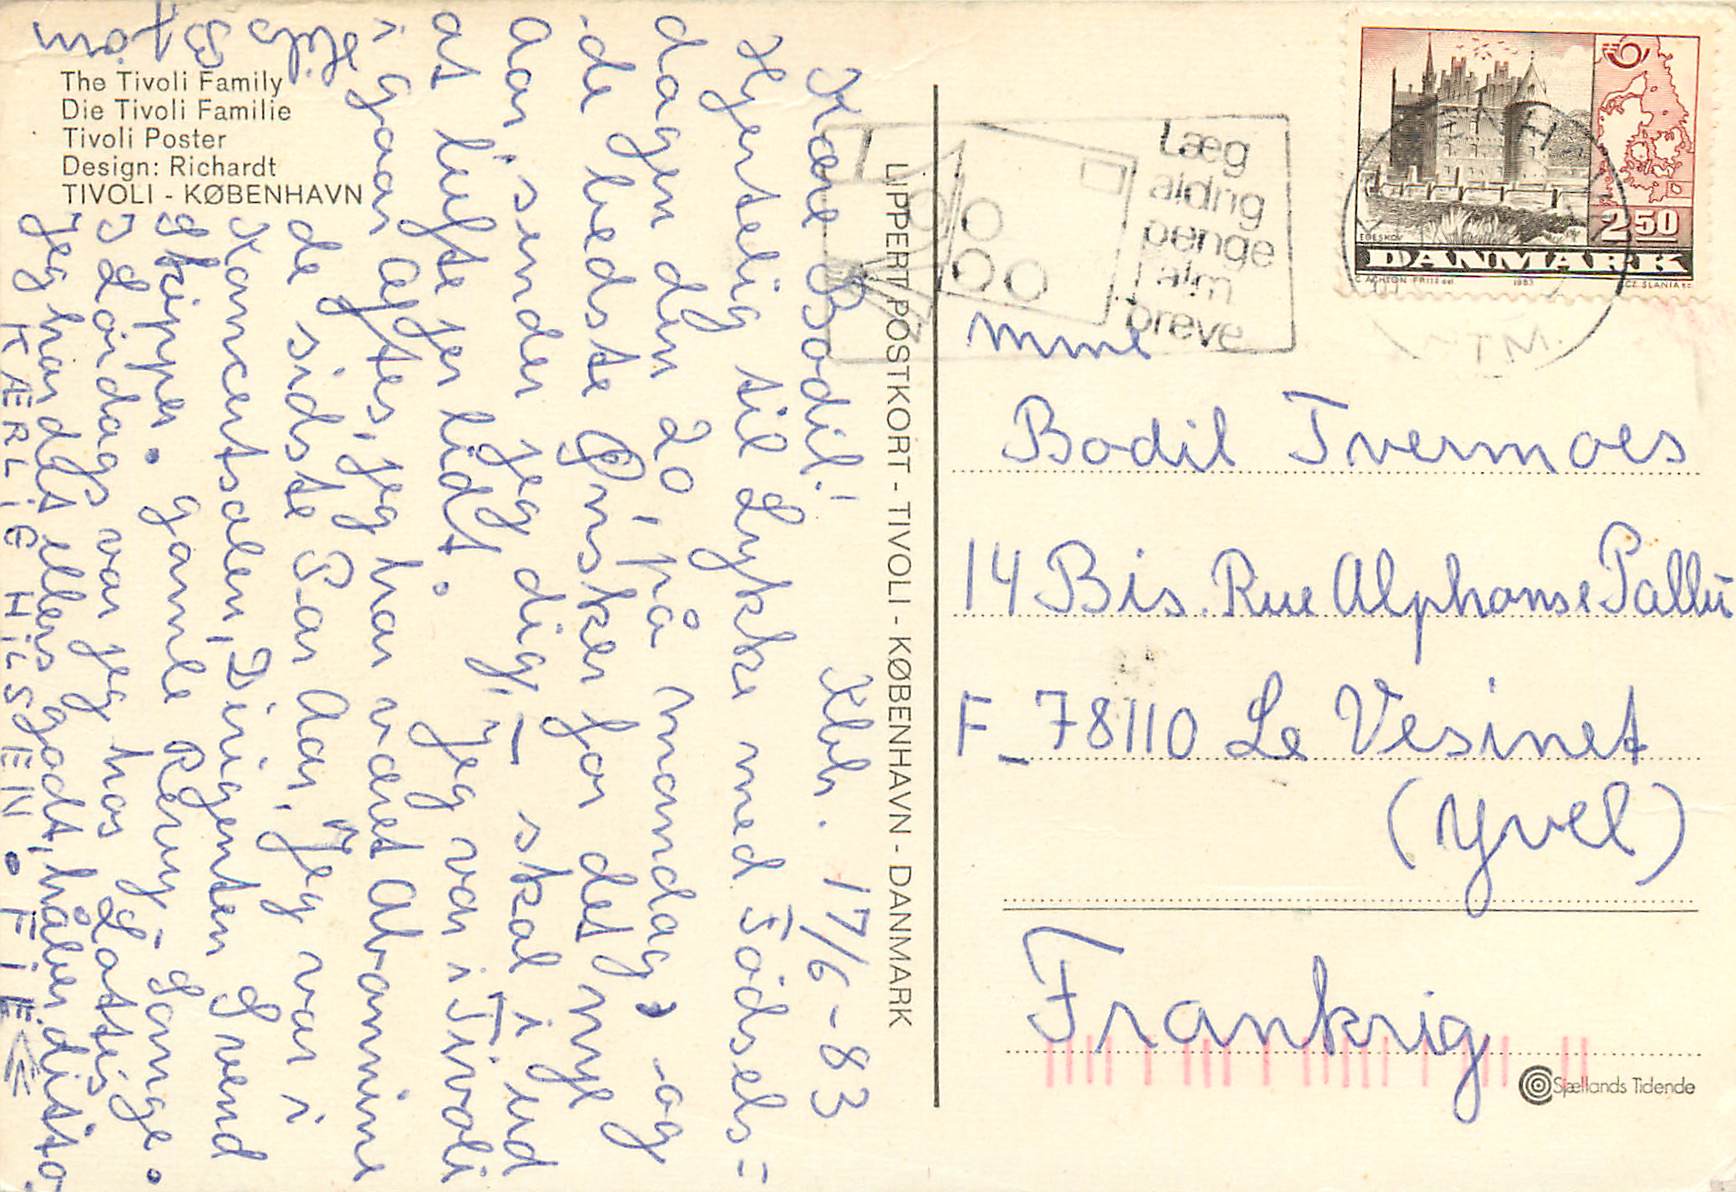 The Tivoli Family
Die Tivoli Familie
Tivoli Poster
Design: Richardt
TIVOLI - KØBENHAVN
Kbh. 17/6-83
Kære Bodil!
Hjertelig til Lykke med Födsels=
dagen den 20, på mandag, og
de bedste Ønsker for det nye
Aar sender jeg dig, – skal i ud
at lufte jer lidt. Jeg var i Tivoli
i gaar Aftes, jeg har været Abonnine
de sidste Par Aar, Jeg var i
Koncertsalen, Dirigenten Svend
Skipper. gamle Revy-Sange.
I Lördags var jeg hos Lottis
Jeg har det ellers godt, håber dito,
KÆRLIG HILSEN. FiE
Hils Bjørn
LIPPERT POSTKORT - TIVOLI - KØBENHAVN - DANMARK
Læg
aldrig
penge
i alm
breve
EGESKOV
2 50
DANMARK
1983
CZ. SLANIA sc.
Mme
Bodil Tvermoes
14 Bis. Rue Alphonse Pallu
F_78110 Le Vesinet
(Yvel)
Frankrig
Sjællands Tidende